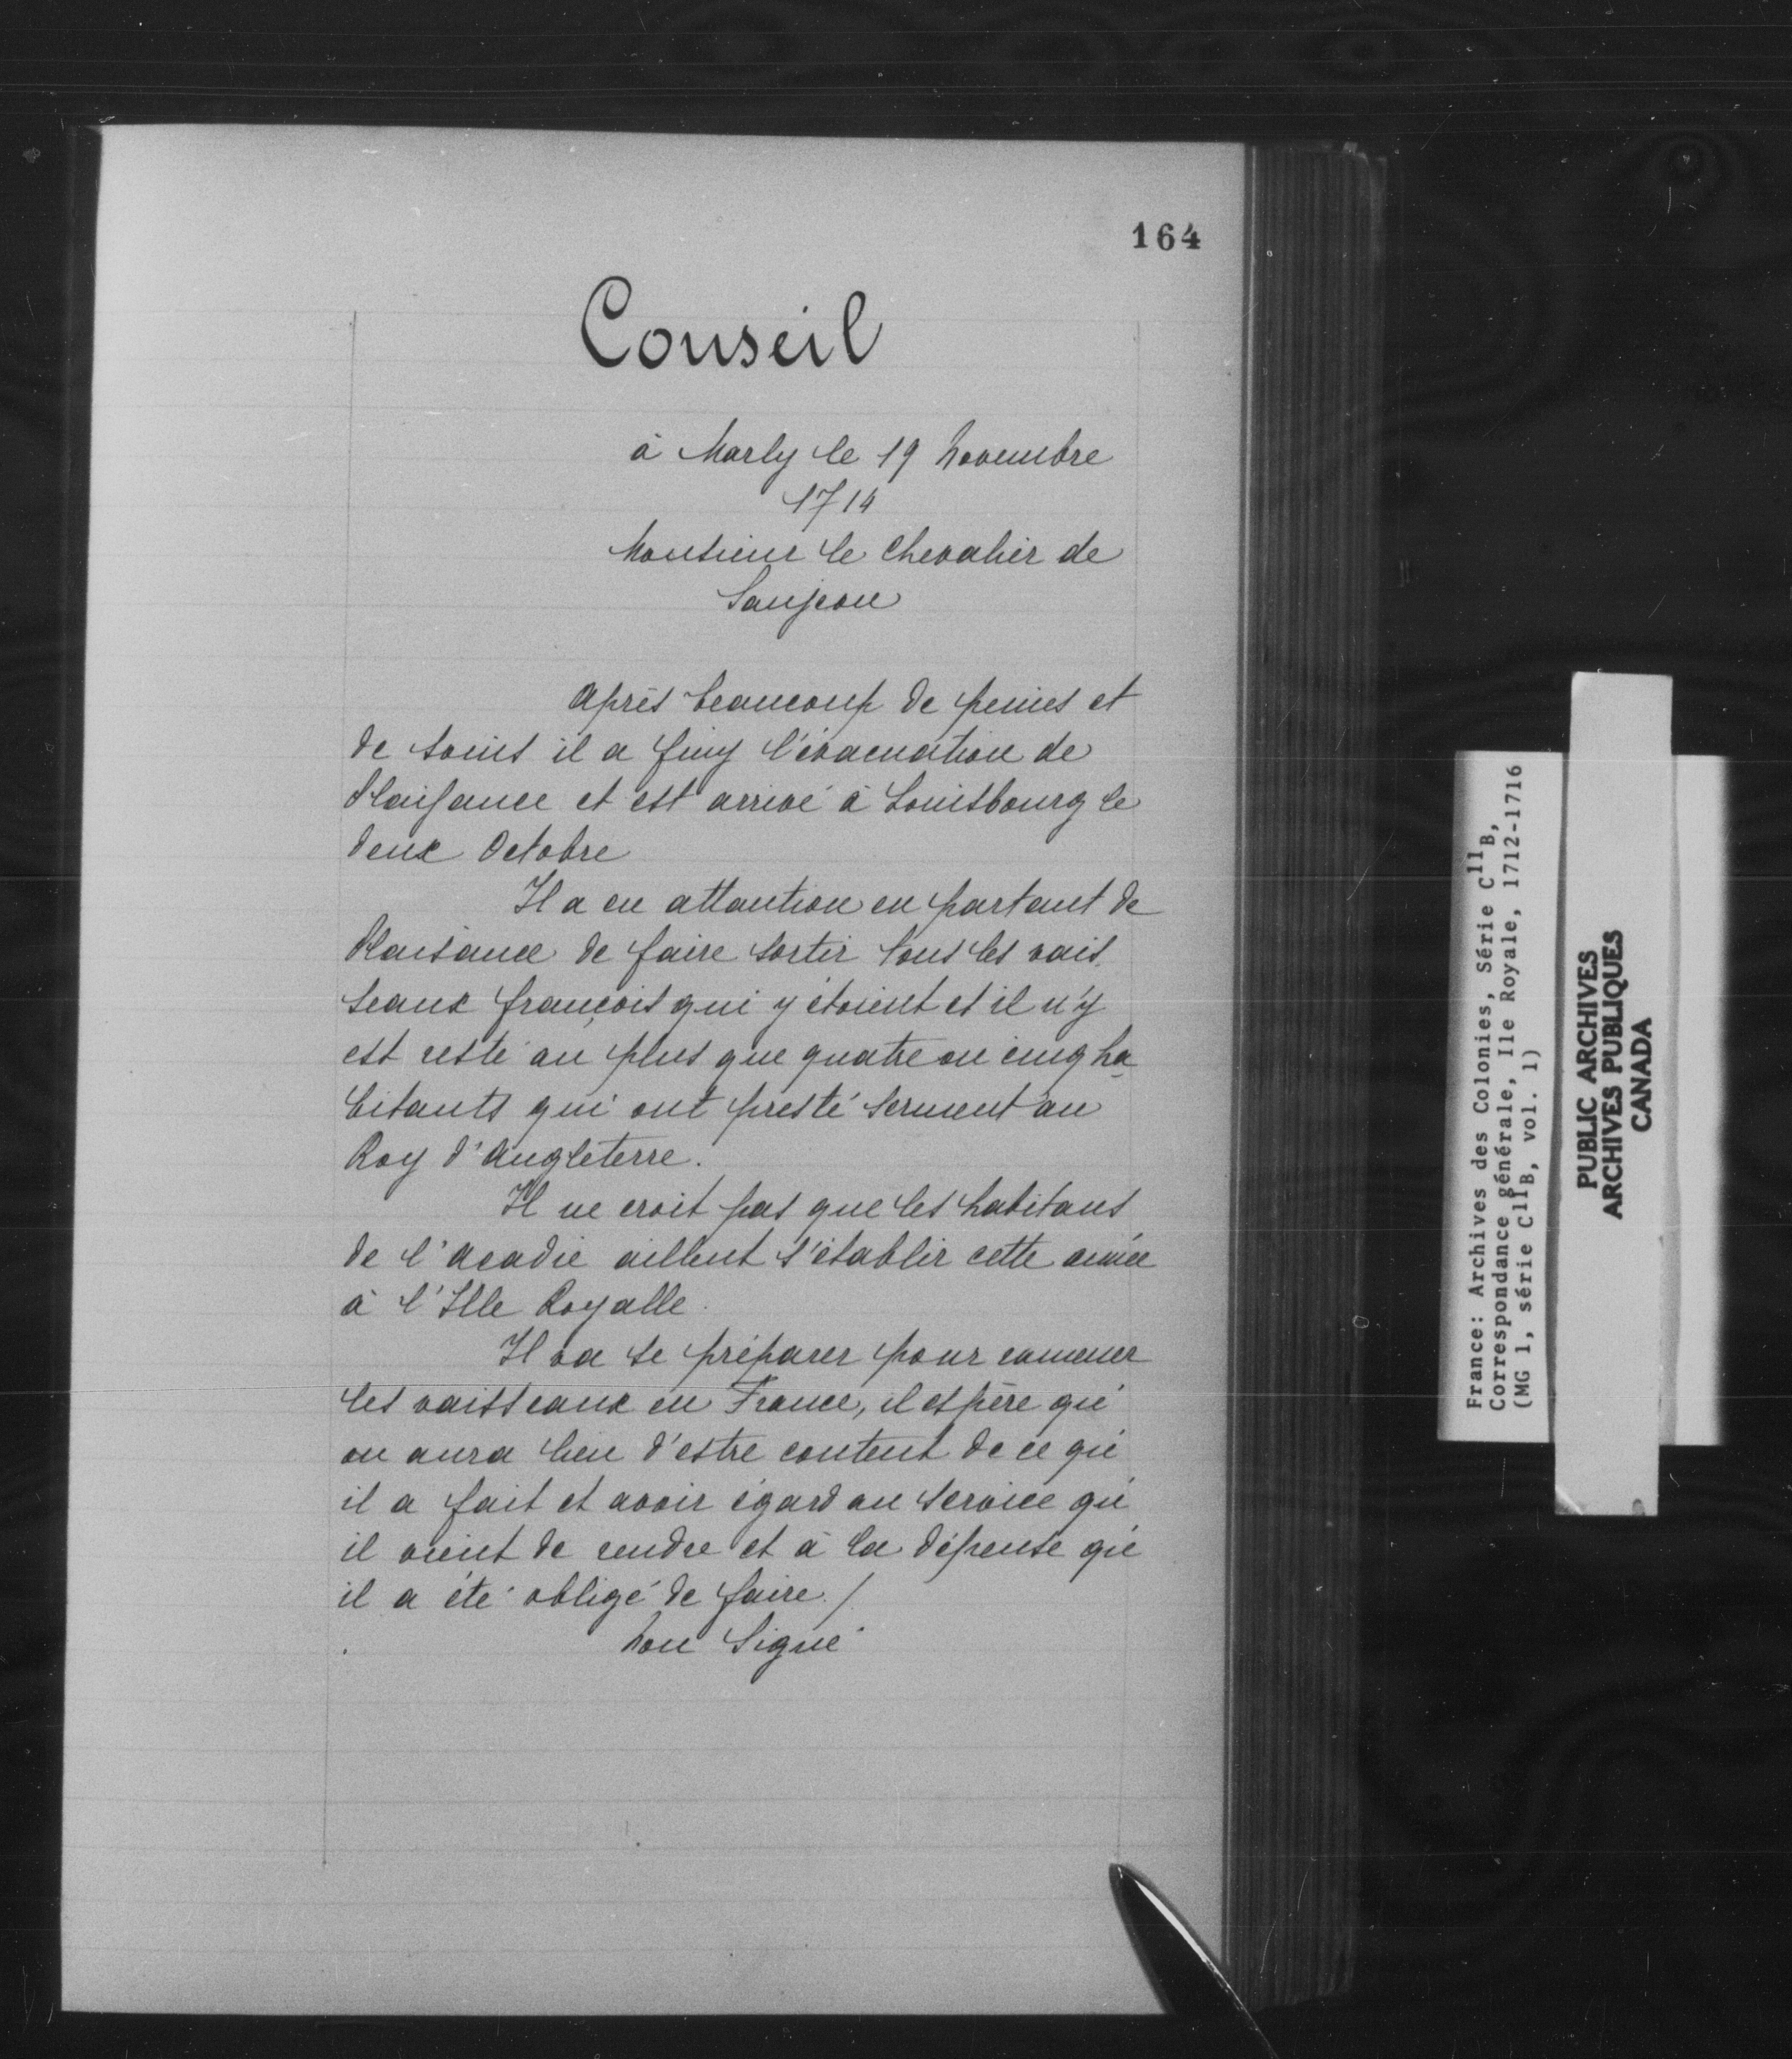 164
Conseil
à Marly le 19 Novembre
1714
Monsieur le Chevalier de
Saujeon
Après beaucoup de peines et
de soins il a finy l'évacuation de
Plaisance et est arrivé à Louisbourg le
deux Octobre
Il a eu attantion en partant de
Plaisance de faire sortir tous les vais
seaux françois qui y étoient et il n'y
est resté au plus que quatre ou cinq ha
bitants qui ont presté serment au
Roy d'Angleterre.
Il ne croit pas que les habitans
de l'Acadie aillent s'établir cette année
à l'Isle Royalle.
Il va se préparer pour ramener
les vaisseaux en France, il espère qu'
on aura lieu d'estre content de ce qu'
il a fait et avoir égard au service qu'
il vient de rendre et à la dépense qu'
il a été obligé de faire /.
Non Signé
France: Archives des Colonies, Série C11B,
Correspondance générale, Ile Royale, 1712-1716
(MG 1, série C11B, vol. 1)
PUBLIC ARCHIVES
ARCHIVES PUBLIQUES
CANADA